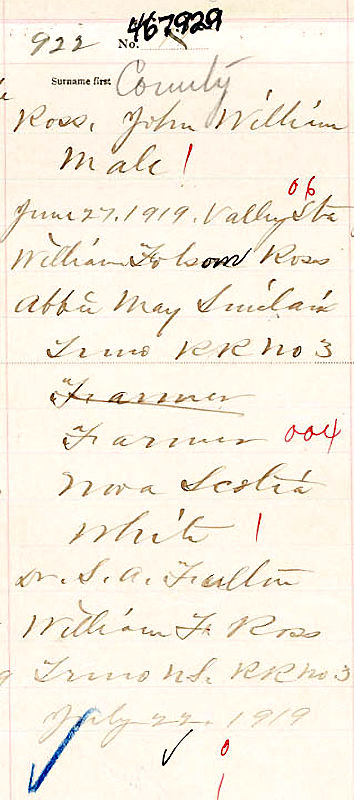 467929
922 No.
Surname first County
Ross, John William
Male 1
06
June 27. 1919. Valley Sta
William Folsom Ross
Abbie May Sinclair
Truro RR No 3
Farmer
Farmer 004
Nova Scotia
White 1
Dr. S. A. Fulton
William F. Ross
Truro N.S. RR No 3
July 22. 1919
0
1